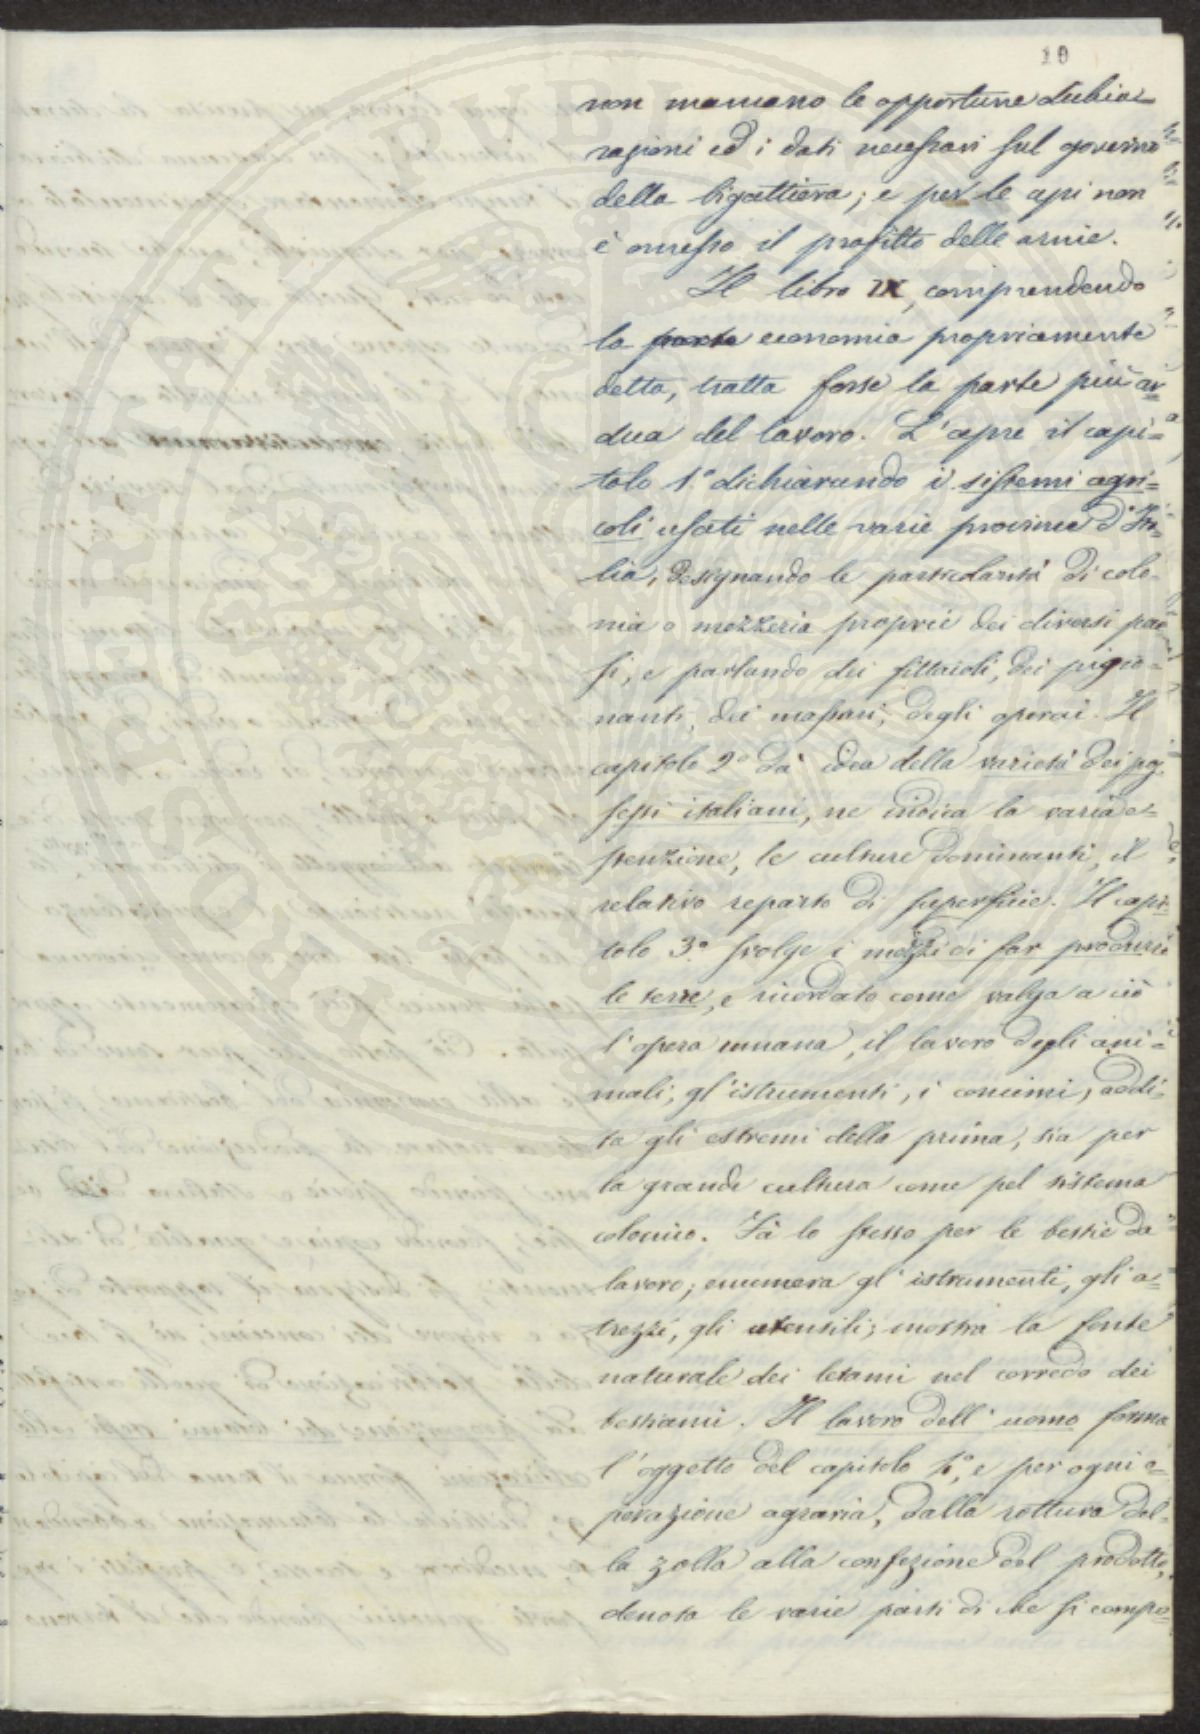 10
non mancano le opportune dichia=
razioni ed i dati necessari sul governo
della bigattiera; e per le api non
è omesso il profitto delle arnie.
Il libro IX, comprendendo
la parte economia propriamente
detta, tratta forse la parte più ar=
dua del lavoro. L'apre il capi=
tolo 1.º dichiarando i sistemi agri=
coli usati nelle varie provincie d'Ita=
lia, designando le particolarità di colo=
nia o mezzeria proprie dei diversi pae=
si, e parlando dei fittaioli, dei pigio=
nanti, dei massari, degli operai. Il
capitolo 2º dà idea della varietà dei pos=
sessi italiani, ne indica la varia e=
stenzione, le culture dominanti, il
relativo reparto di superficie. Il capi=
tolo 3.º svolge i mezzi di far produrre
le terre, e ricordato come valga a ciò
l'opera umana, il lavoro degli ani=
mali, gl'istrumenti, i concimi, addi=
ta gli estremi della prima, sia per
la grande cultura come pel sistema
colonico. Fà lo stesso per le bestie da
lavoro; enumera gl'istrumenti, gli a=
trezzi, gli utensili; mostra la fonte
naturale dei letami nel corredo dei
bestiami. Il lavoro dell'uomo forma
l'oggetto del capitolo 4º, e per ogni o=
perazione agraria, dalla rottura del=
la zolla alla confezione del prodotto,
denota le varie parti di che si compo=